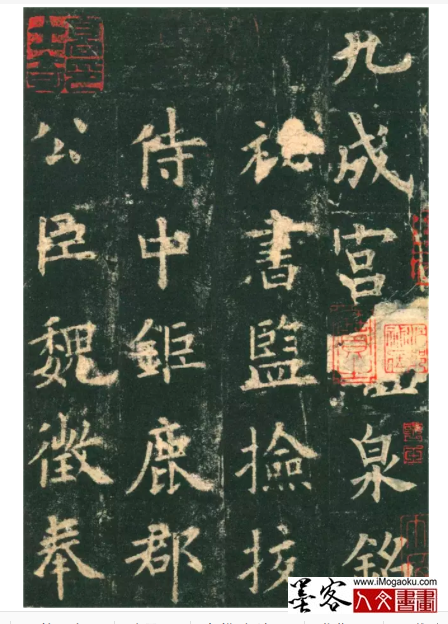 九成宮泉銘
祕書監撿挍
侍中鉅鹿郡
公臣魏徵奉
www.iMogaoku.com
墨客 人文書畫